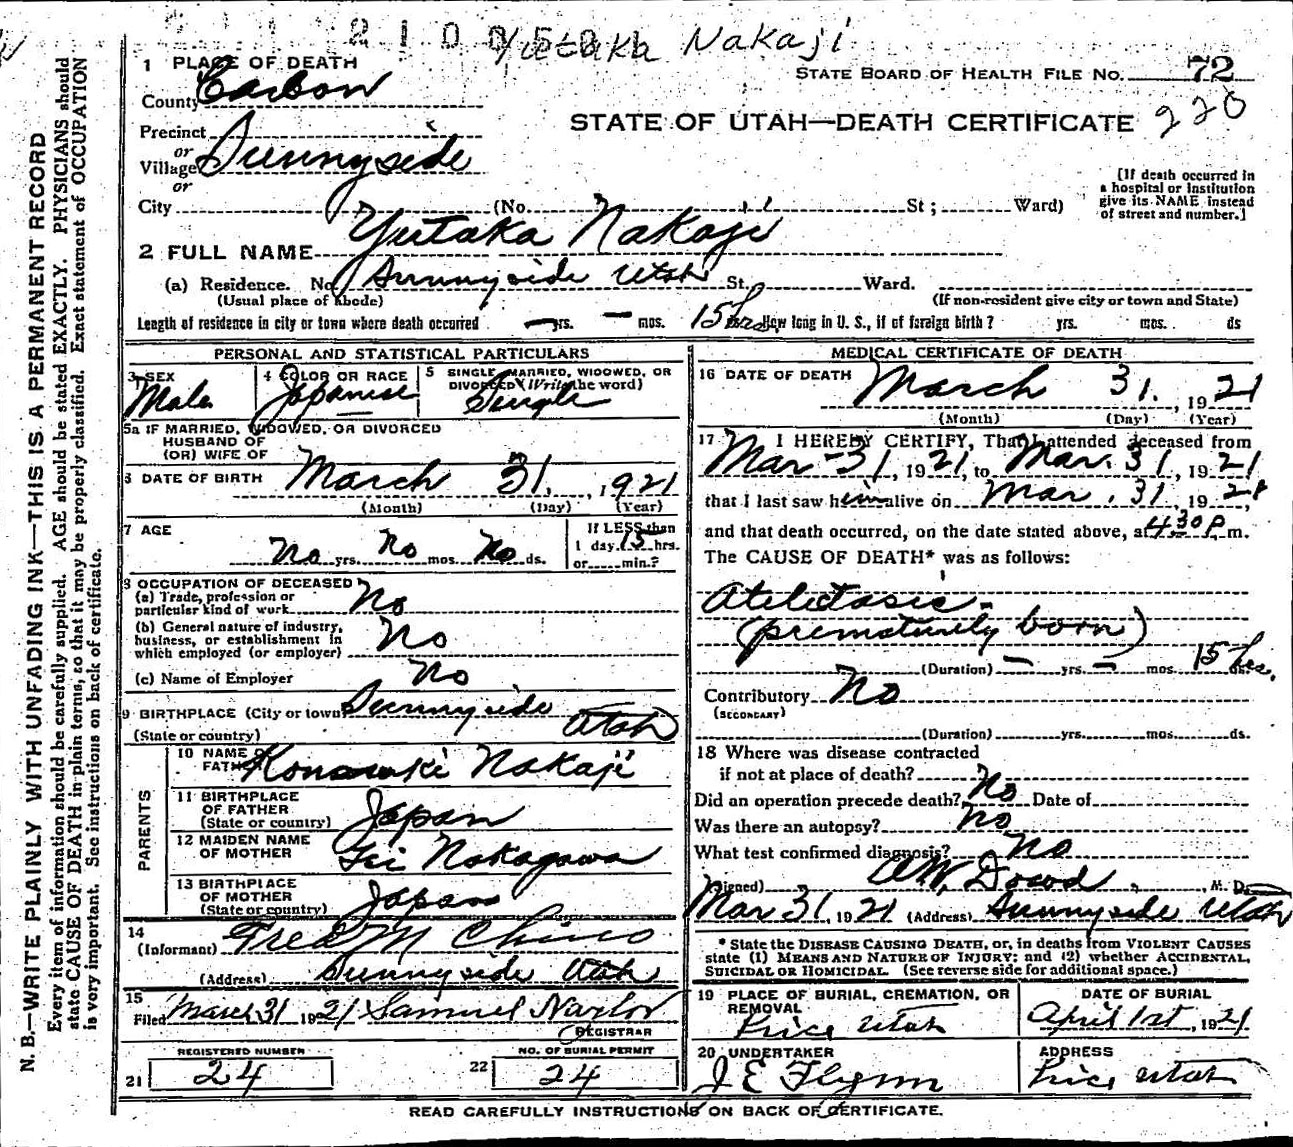 Yutaka Nakaji
1 PLACE OF DEATH
STATE BOARD OF HEALTH FILE NO. 72
County Carbon
220
STATE OF UTAH—DEATH CERTIFICATE
Precinct
or
Village Sunnyside
or
[If death occurred in
a hospital or institution
give its NAME instead
of street and number.]
City (No. St ; Ward)
2 FULL NAME Yutaka Nakaji
(a) Residence. No. Sunnyside Utah St. Ward.
(Usual place of abode) (If non-resident give city or town and State)
Length of residence in city or town where death occurred — yrs. — mos. 15 hrs. How long in U. S., if of foreign birth? yrs. mos. ds
PERSONAL AND STATISTICAL PARTICULARS
3 SEX
Male
4 COLOR OR RACE
Japanese
5 SINGLE, MARRIED, WIDOWED, OR
DIVORCED (Write the word)
Single
5a IF MARRIED, WIDOWED, OR DIVORCED
HUSBAND OF
(OR) WIFE OF
6 DATE OF BIRTH March 31, 1921
(Month) (Day) (Year)
7 AGE
No yrs. No mos. No ds.
If LESS than
1 day 15 hrs.
or min.?
8 OCCUPATION OF DECEASED
(a) Trade, profession or
particular kind of work No
(b) General nature of industry,
business, or establishment in
which employed (or employer) No
(c) Name of Employer No
9 BIRTHPLACE (City or town) Sunnyside
(State or country) Utah
PARENTS
10 NAME OF
FATHER Nakaji
11 BIRTHPLACE
OF FATHER
(State or country) Japan
12 MAIDEN NAME
OF MOTHER Nakagawa
13 BIRTHPLACE
OF MOTHER
(State or country) Japan
14
(Informant) Fred M Chino
(Address) Sunnyside Utah
15
Filed March 31 1921 Samuel Naylor
REGISTRAR
REGISTERED NUMBER
21 24
NO. OF BURIAL PERMIT
22 24
MEDICAL CERTIFICATE OF DEATH
16 DATE OF DEATH March 31, 1921
(Month) (Day) (Year)
17 I HEREBY CERTIFY, That I attended deceased from
Mar-31, 1921, to Mar. 31, 1921
that I last saw him alive on Mar. 31, 1921,
and that death occurred, on the date stated above, at 4 30 P. m.
The CAUSE OF DEATH* was as follows:
Atelectasis -
(prematurely born)
(Duration) — yrs. — mos. 15 hrs.
Contributory No
(SECONDARY)
(Duration) yrs. mos. ds.
18 Where was disease contracted
if not at place of death?
Did an operation precede death? No Date of
Was there an autopsy? No
What test confirmed diagnosis? No
(Signed) A.W. Dowd, M. D.
Mar 31, 1921 (Address) Sunnyside Utah
* State the DISEASE CAUSING DEATH, or, in deaths from VIOLENT CAUSES
state (1) MEANS AND NATURE OF INJURY; and (2) whether ACCIDENTAL,
SUICIDAL OR HOMICIDAL. (See reverse side for additional space.)
19 PLACE OF BURIAL, CREMATION, OR
REMOVAL
Price Utah
DATE OF BURIAL
April 1st, 1921
20 UNDERTAKER
J E Flynn
ADDRESS
Price Utah
READ CAREFULLY INSTRUCTIONS ON BACK OF CERTIFICATE.
N. B.—WRITE PLAINLY WITH UNFADING INK—THIS IS A PERMANENT RECORD
Every item of information should be carefully supplied. AGE should be stated EXACTLY. PHYSICIANS should
state CAUSE OF DEATH in plain terms, so that it may be properly classified. Exact statement of OCCUPATION
is very important. See instructions on back of certificate.